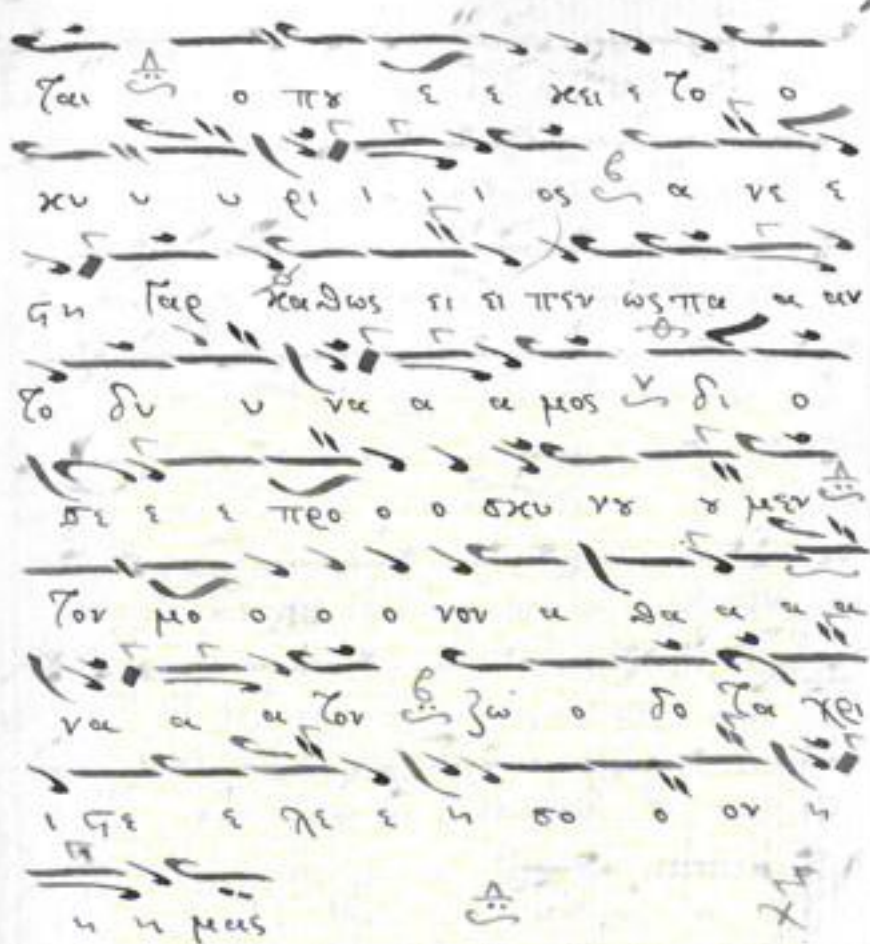 ται ο πȣ ε ε κει ε το ο
κυ υ υ ρι ι ι ι ος α νε ε
ϛη γαρ καθως ει ει πεν ως πα α αν
το δυ υ να α α μος δι ο
σε ε ε προ ο ο σκυ νȣ ȣ μεν
τον μο ο ο ο νον α θα α α α
να α α τον ζω ο δο τα χρι
ι ϛε ε λε ε η σο ο ον η
η η μας